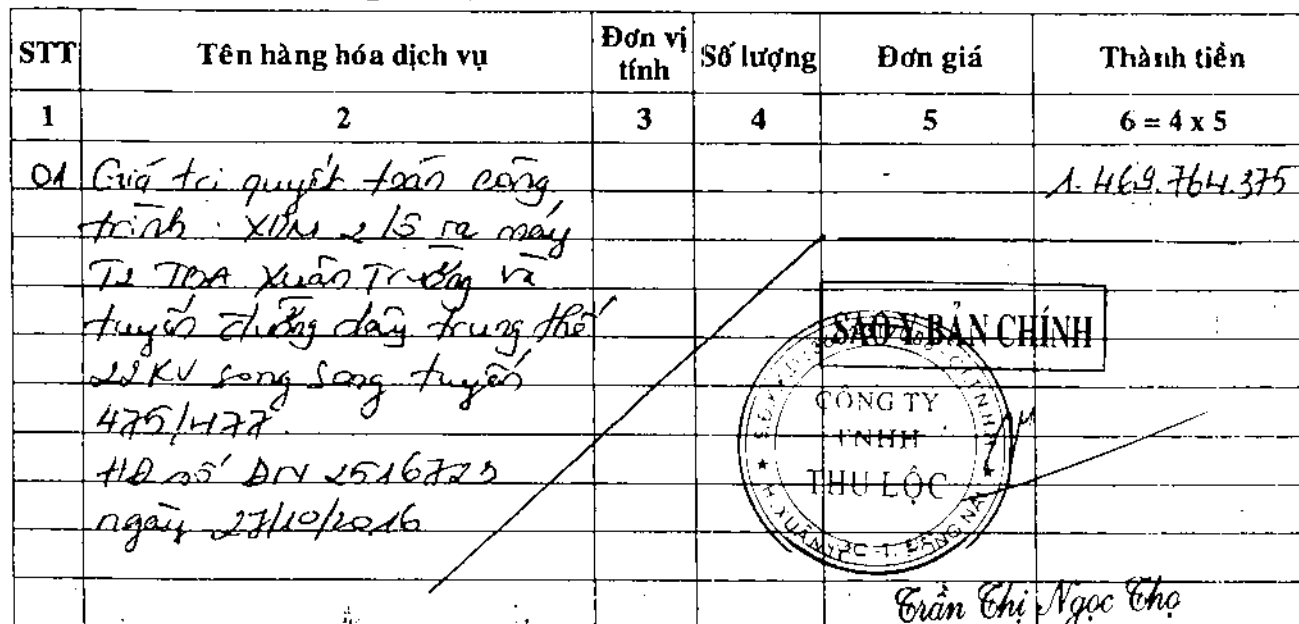 STT Tên hàng hóa dịch vụ Đơn vị tính Số lượng Đơn giá Thành tiền
1 2 3 4 5 6 = 4 x 5
01 Giá trị quyết toán công 1.469.764.375
trình: XDM 2 lộ ra máy
T2 TBA Xuân Trường và
tuyến đường dây trung thế
22KV song song tuyến
475/477.
HĐ số ĐN 2516723
ngày 27/10/2016
SAO Y BẢN CHÍNH
CÔNG TY
TNHH
THU LỘC
Trần Thị Ngọc Thọ